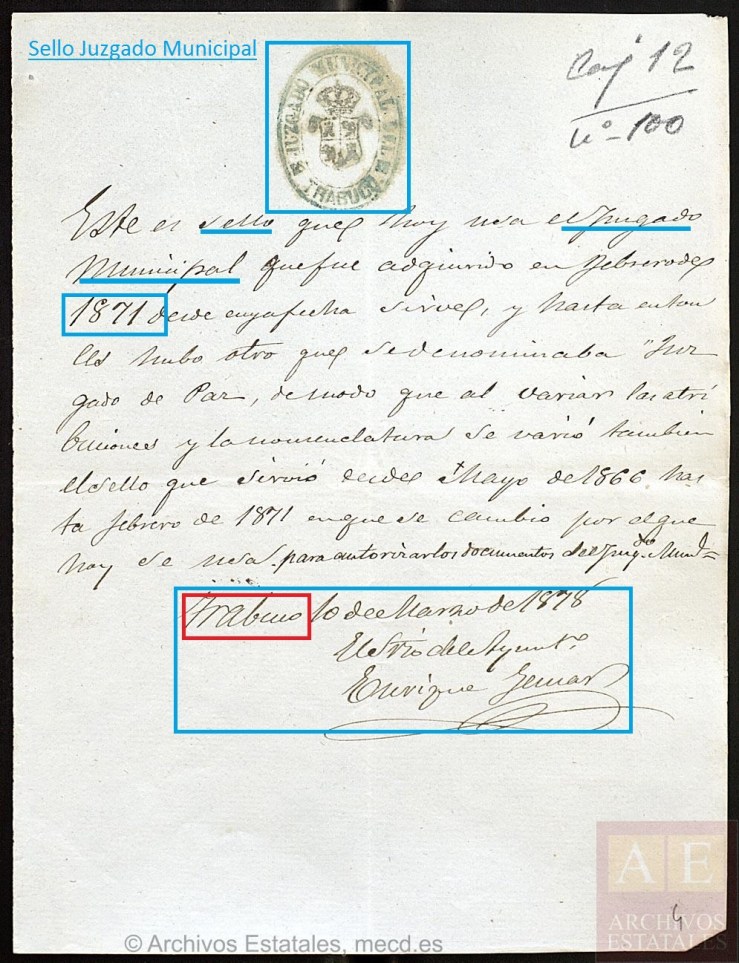 Sello Juzgado Municipal
Caj 12
nº 100
JUZGADO MUNICIPAL DE
TRABUCO
Este es sello que hoy usa el Juzgado
Municipal que fue adquirido en Febrero de
1871 desde cuya fecha sirve, y hasta enton
ces hubo otro que se denominaba "Juz
gado de Paz, de modo que al variar las atri
buciones y la nomenclatura se varió tambien
el sello que sirvió desde Mayo de 1866 has
ta febrero de 1871 en que se cambio por el que
hoy se usa para autorizar los documentos del Juzgdo Munl=
10 de Marzo de 1878
El Srio del Ayuntº
Enrique
AE
ARCHIVOS
ESTATALES
© Archivos Estatales, mecd.es